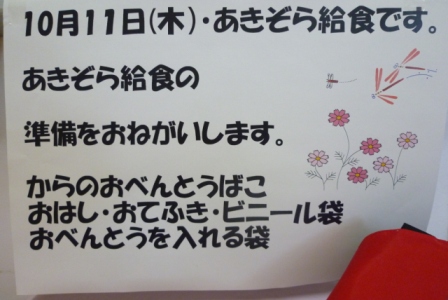 10月11日(木)・あきぞら給食です。
あきぞら給食の
準備をおねがいします。
からのおべんとうばこ
おはし・おてふき・ビニール袋
おべんとうを入れる袋